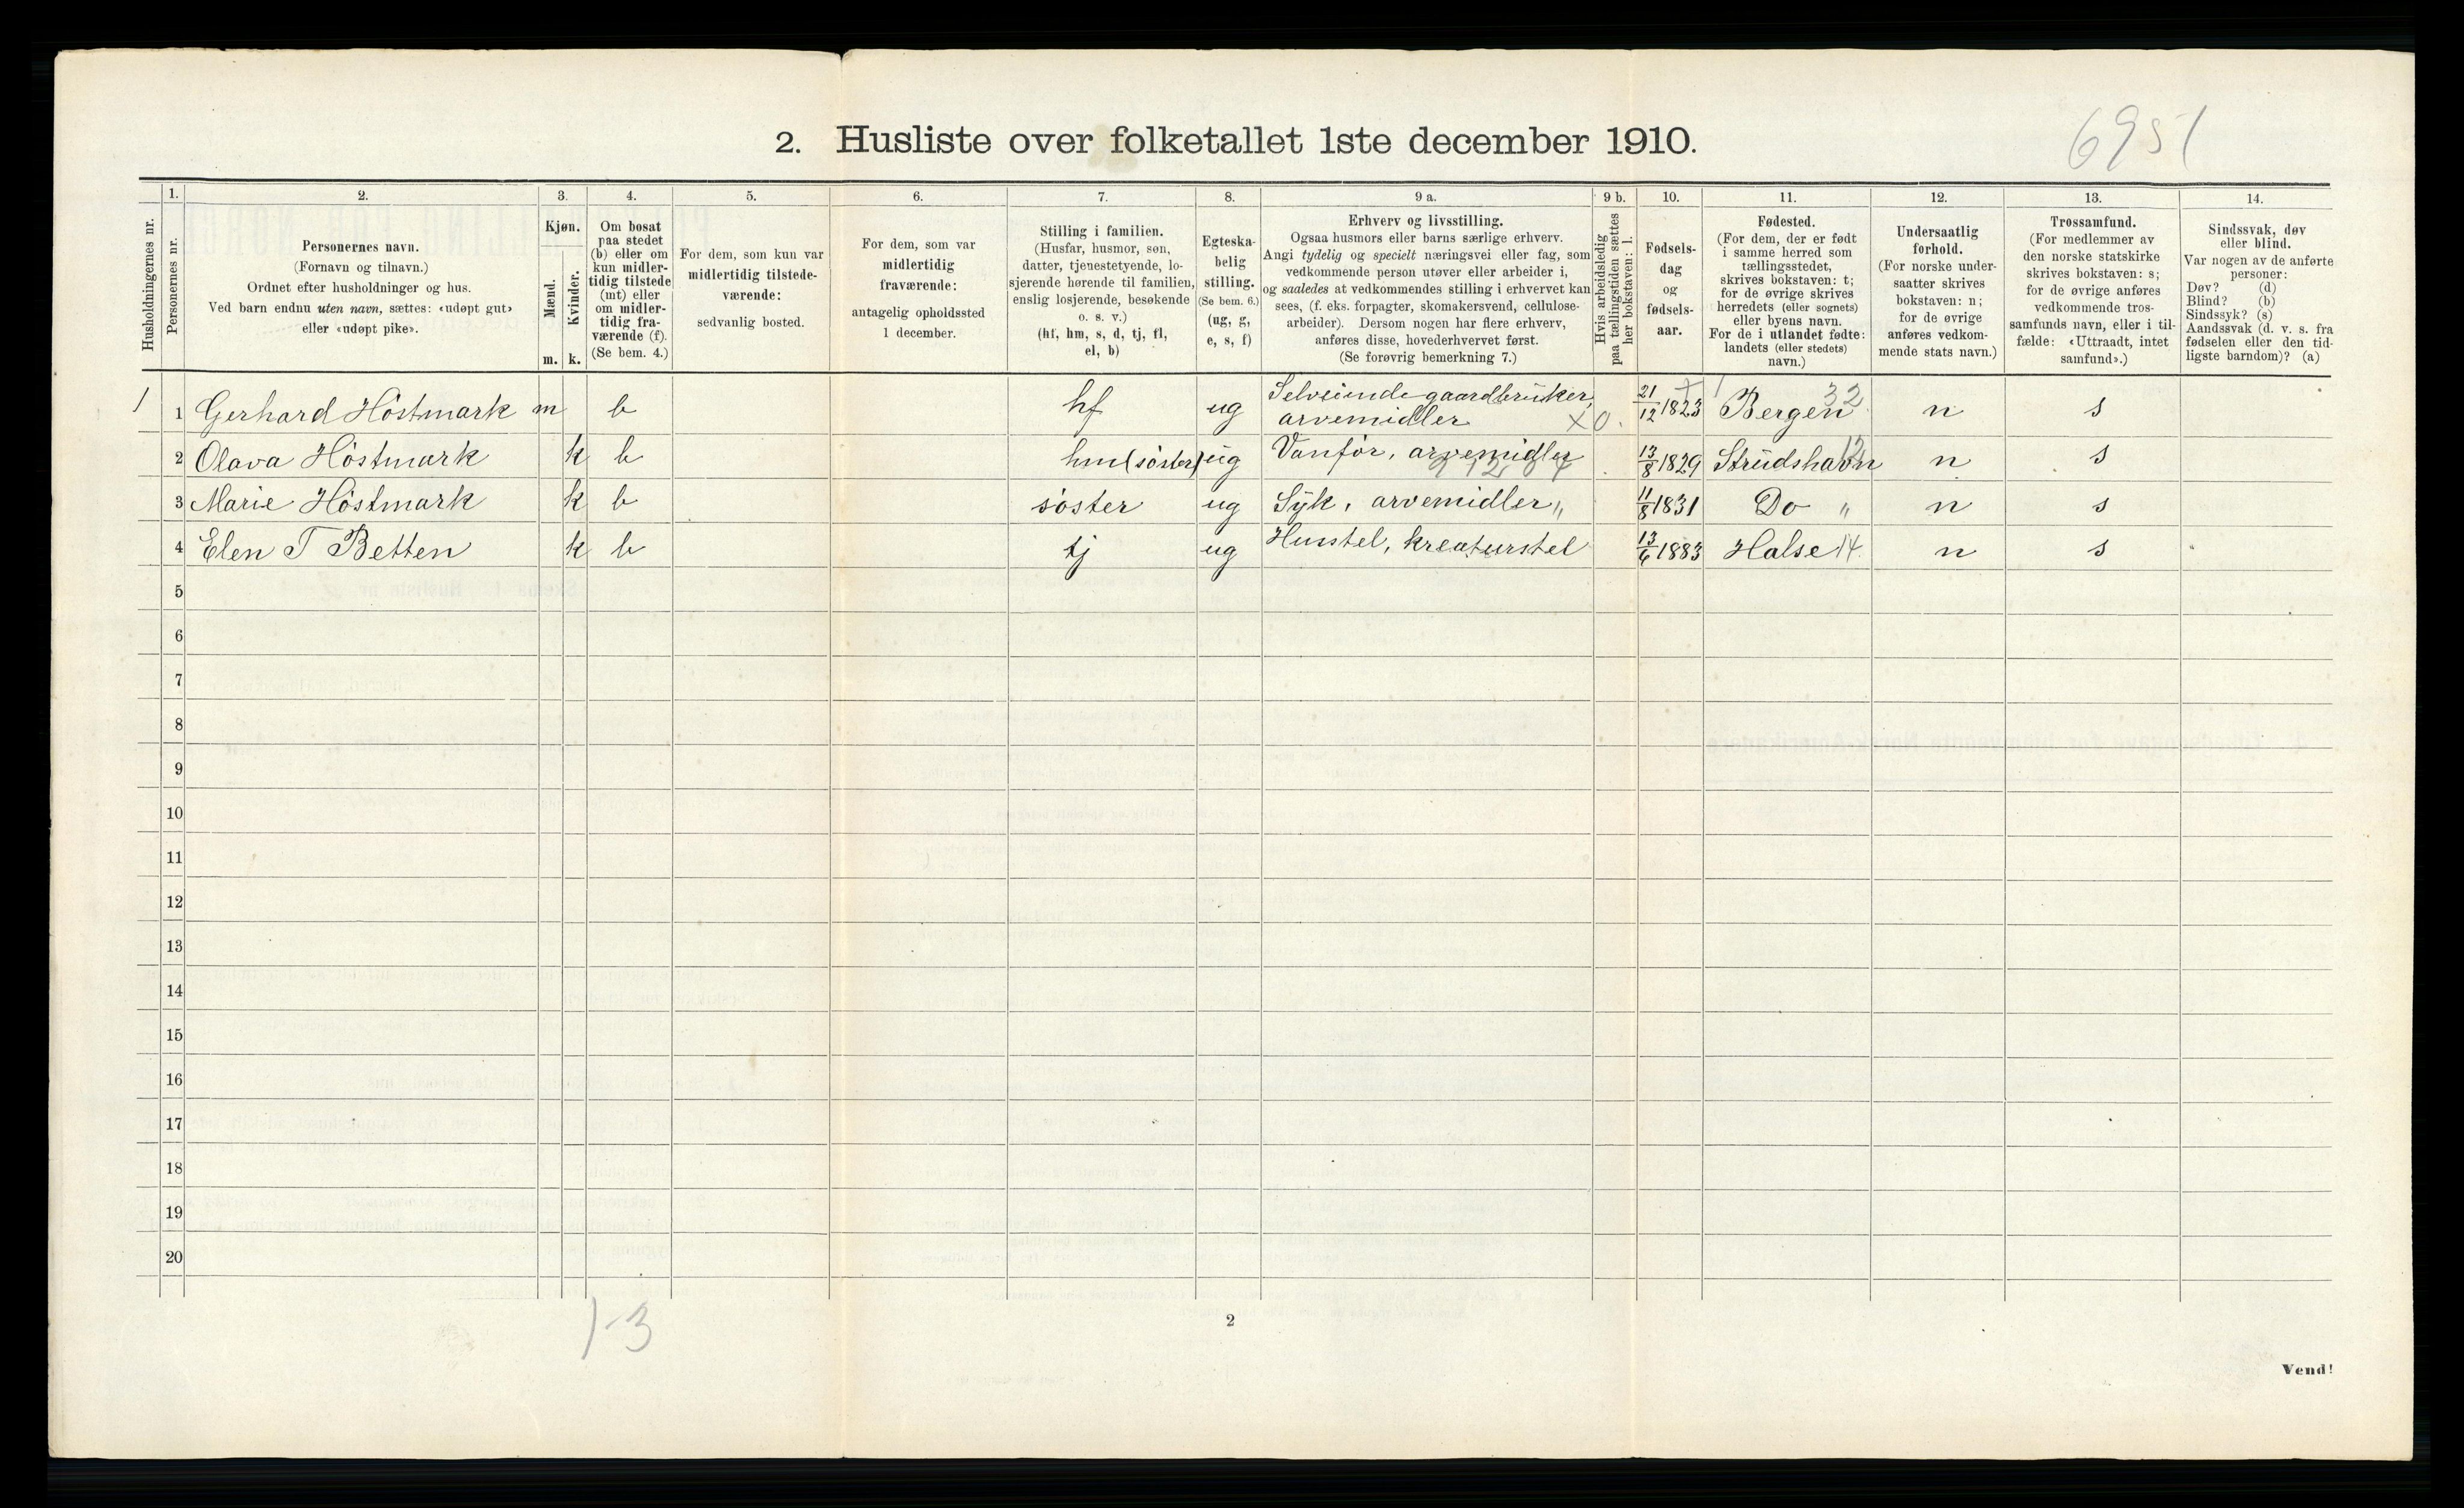 6951
2. Husliste over folketallet 1ste december 1910.
Husholdningernes nr.
1.
Personernes nr.
2.
Personernes navn.
(Fornavn og tilnavn.)
Ordnet efter husholdninger og hus.
Ved barn endnu uten navn, sættes: «udøpt gut»
eller «udøpt pike».
3.
Kjøn.
Mænd.
Kvinder.
m. k.
4.
Om bosat
paa stedet
(b) eller om
kun midler-
tidig tilstede
(mt) eller
om midler-
tidig fra-
værende (f).
(Se bem. 4.)
5.
For dem, som kun var
midlertidig tilstede-
værende:
sedvanlig bosted.
6.
For dem, som var
midlertidig
fraværende:
antagelig opholdssted
1 december.
7.
Stilling i familien.
(Husfar, husmor, søn,
datter, tjenestetyende, lo-
sjerende hørende til familien,
enslig losjerende, besøkende
o. s. v.)
(hf, hm, s, d, tj, fl,
el, b)
8.
Egteska-
belig
stilling.
(Se bem. 6.)
(ug, g,
e, s, f)
9 a.
Erhverv og livsstilling.
Ogsaa husmors eller barns særlige erhverv.
Angi tydelig og specielt næringsvei eller fag, som
vedkommende person utøver eller arbeider i,
og saaledes at vedkommendes stilling i erhvervet kan
sees, (f. eks. forpagter, skomakersvend, cellulose-
arbeider). Dersom nogen har flere erhverv,
anføres disse, hovederhvervet først.
(Se forøvrig bemerkning 7.)
9 b.
Hvis arbeidsledig
paa tællingstiden sættes
her bokstaven: l.
10.
Fødsels-
dag
og
fødsels-
aar.
11.
Fødested.
(For dem, der er født
i samme herred som
tællingsstedet,
skrives bokstaven: t;
for de øvrige skrives
herredets (eller sognets)
eller byens navn.
For de i utlandet fødte:
landets (eller stedets)
navn.)
12.
Undersaatlig
forhold.
(For norske under-
saatter skrives
bokstaven: n;
for de øvrige
anføres vedkom-
mende stats navn.)
13.
Trossamfund.
(For medlemmer av
den norske statskirke
skrives bokstaven: s;
for de øvrige anføres
vedkommende tros-
samfunds navn, eller i til-
fælde: «Uttraadt, intet
samfund».)
14.
Sindssvak, døv
eller blind.
Var nogen av de anførte
personer:
Døv? (d)
Blind? (b)
Sindssyk? (s)
Aandssvak (d. v. s. fra
fødselen eller den tid-
ligste barndom)? (a)
1 1 Gerhard Höstmark m b hf ug Selveiende gaardbruker, arvemidler x0. 21/12 1823 Bergen 32 n s
2 Olava Höstmark k b hm (söster) ug Vanför, arvemidler 13/8 1829 Strudshavn 12 n s
3 Marie Höstmark k b söster ug Syk, arvemidler " 11/8 1831 Do " n s
4 Elen T Betten k b tj ug Husstel, kreaturstel 13/6 1883 Halse 14. n s
5
6
7
8
9
10
11
12
13
14
15
16
17
18
19
20
1-3
2
Vend!